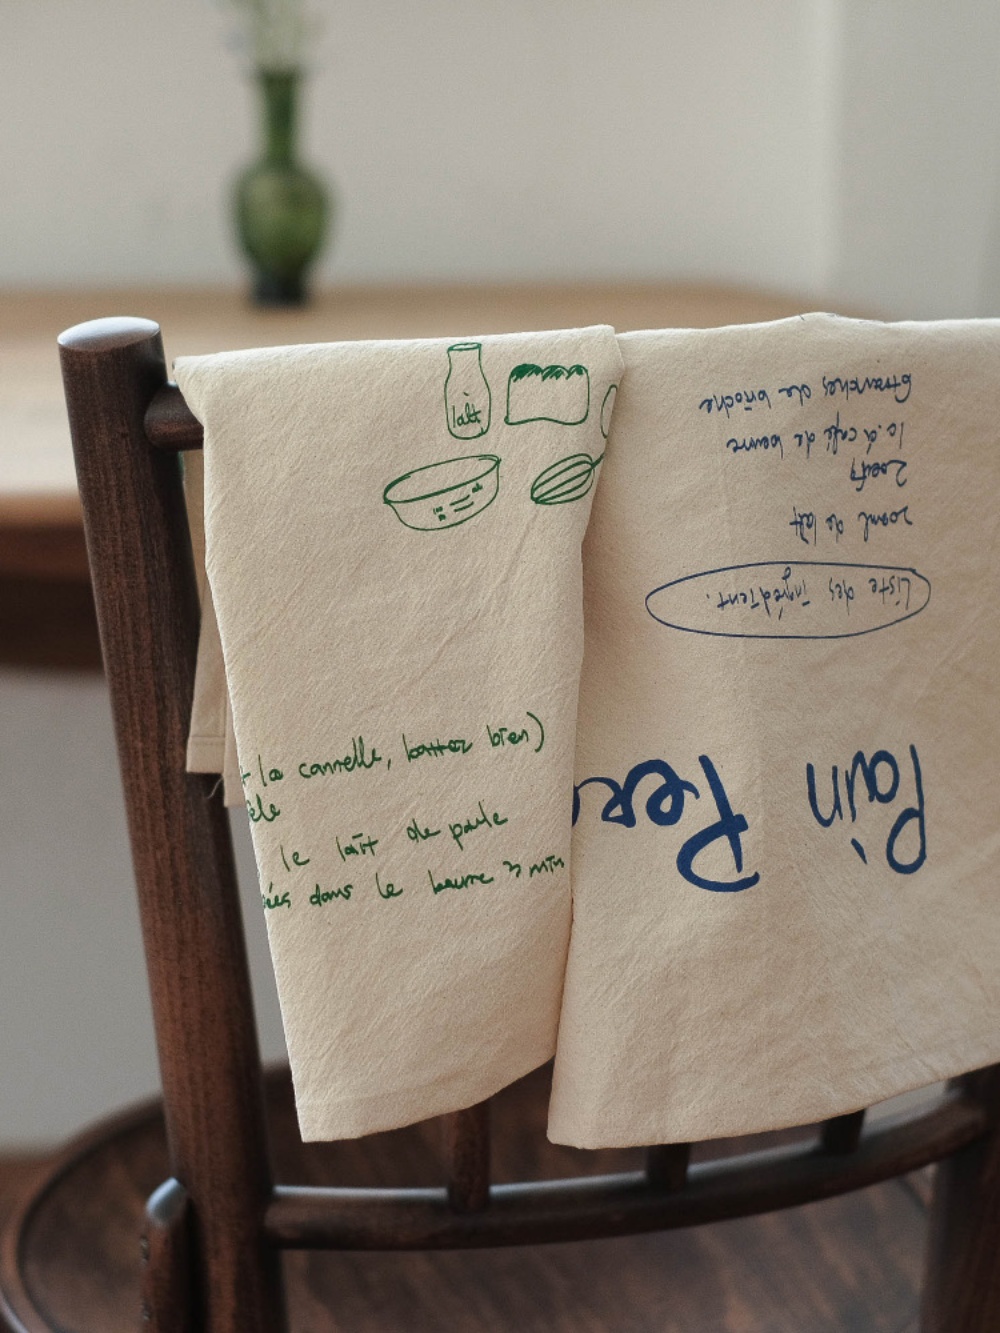 lait
la cannelle, batter bien)
le lait de poule
dans le beurre 3 min
Pain
Per
Liste des ingrédient.
200ml de lait
2 oeufs
1c.à café de beurre
6 tranches de brioche